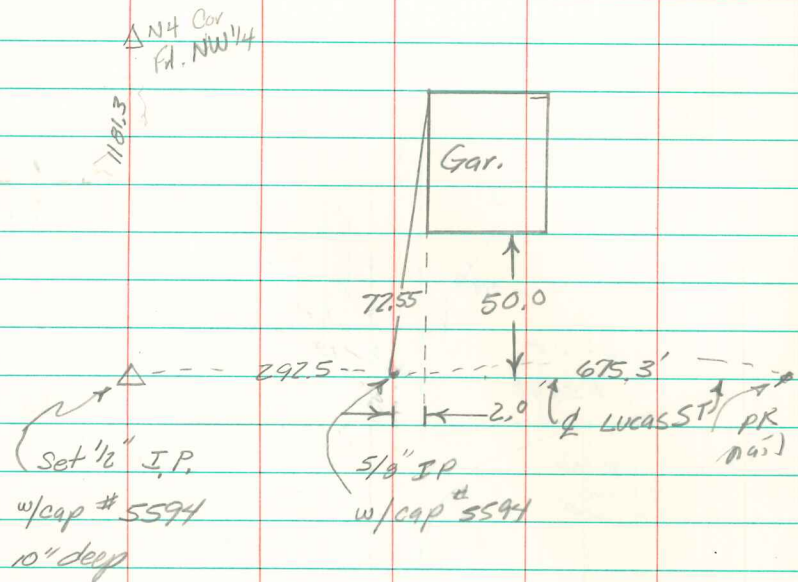 N4 Cor
Frl. NW 1/4
1181.3
Gar.
72.55
50.0
292.5
675.3'
2.0
℄ LUCAS ST
PK
nail
Set 1/2" I.P.
w/cap # 5594
10" deep
5/8" IP
w/cap # 5594